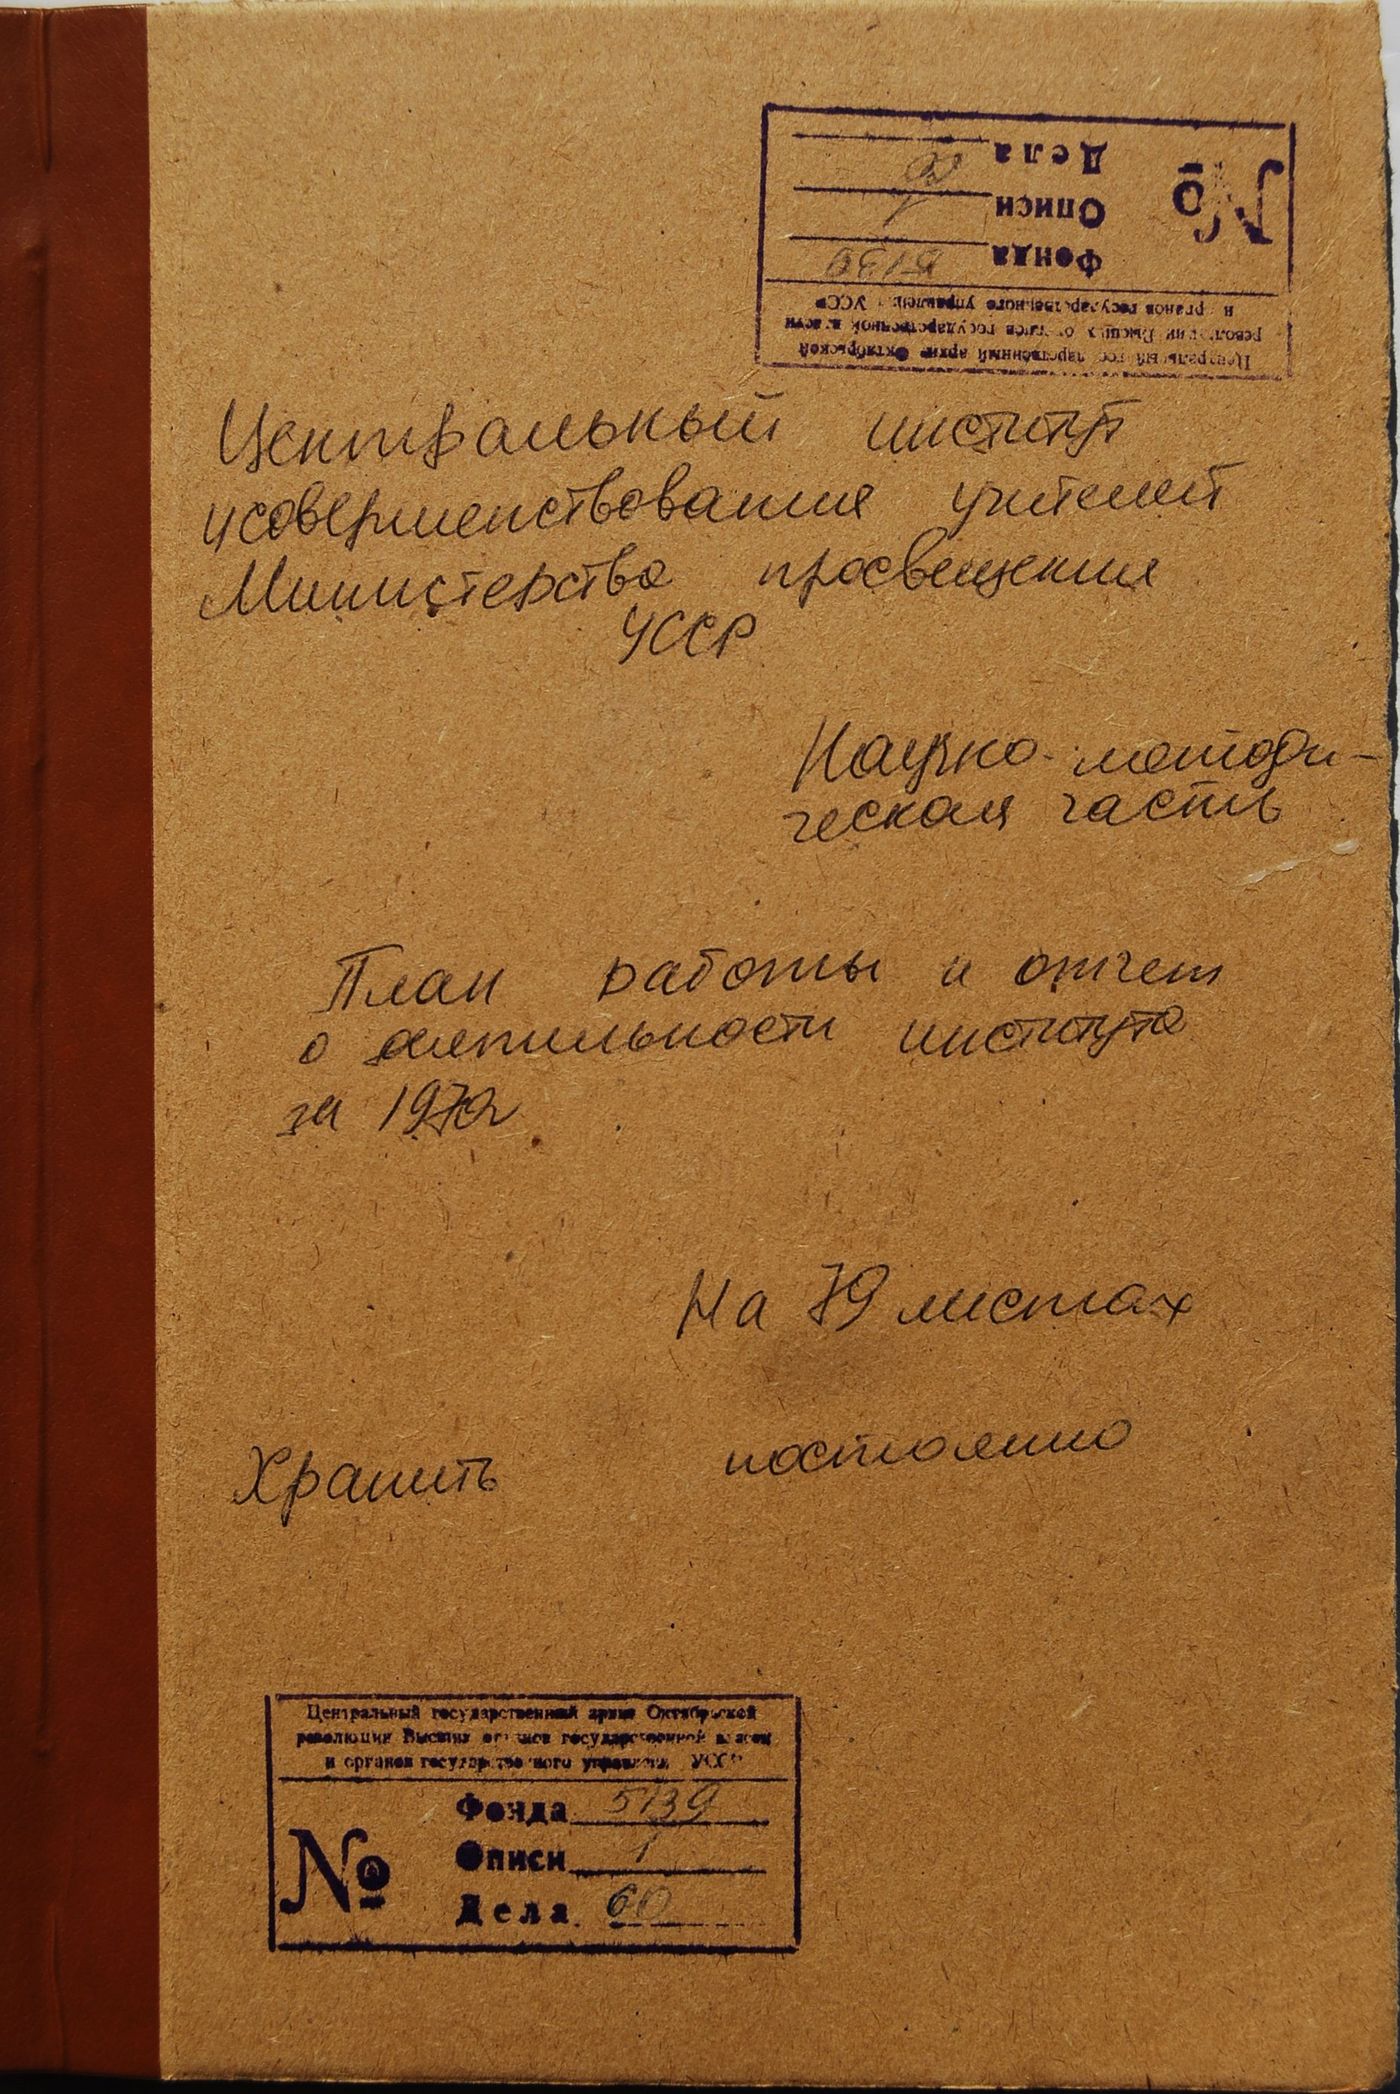 Дела 60
Описи 1
Фонда 5139
№
Центральный государственный архив Октябрьской
революции Высших органов государственной власти
и органов государственного управления УССР
Центральный институт
усовершенствования учителей
Министерства просвещения
УССР
Научно-методи-
ческая часть
План работы и отчет
о деятельности института
за 1972
На 79 листах
Хранить постоянно
Центральный государственный архив Октябрьской
революции Высших органов государственной власти
и органов государственного управления УССР
Фонда 5139
№ Описи 1
Дела 60